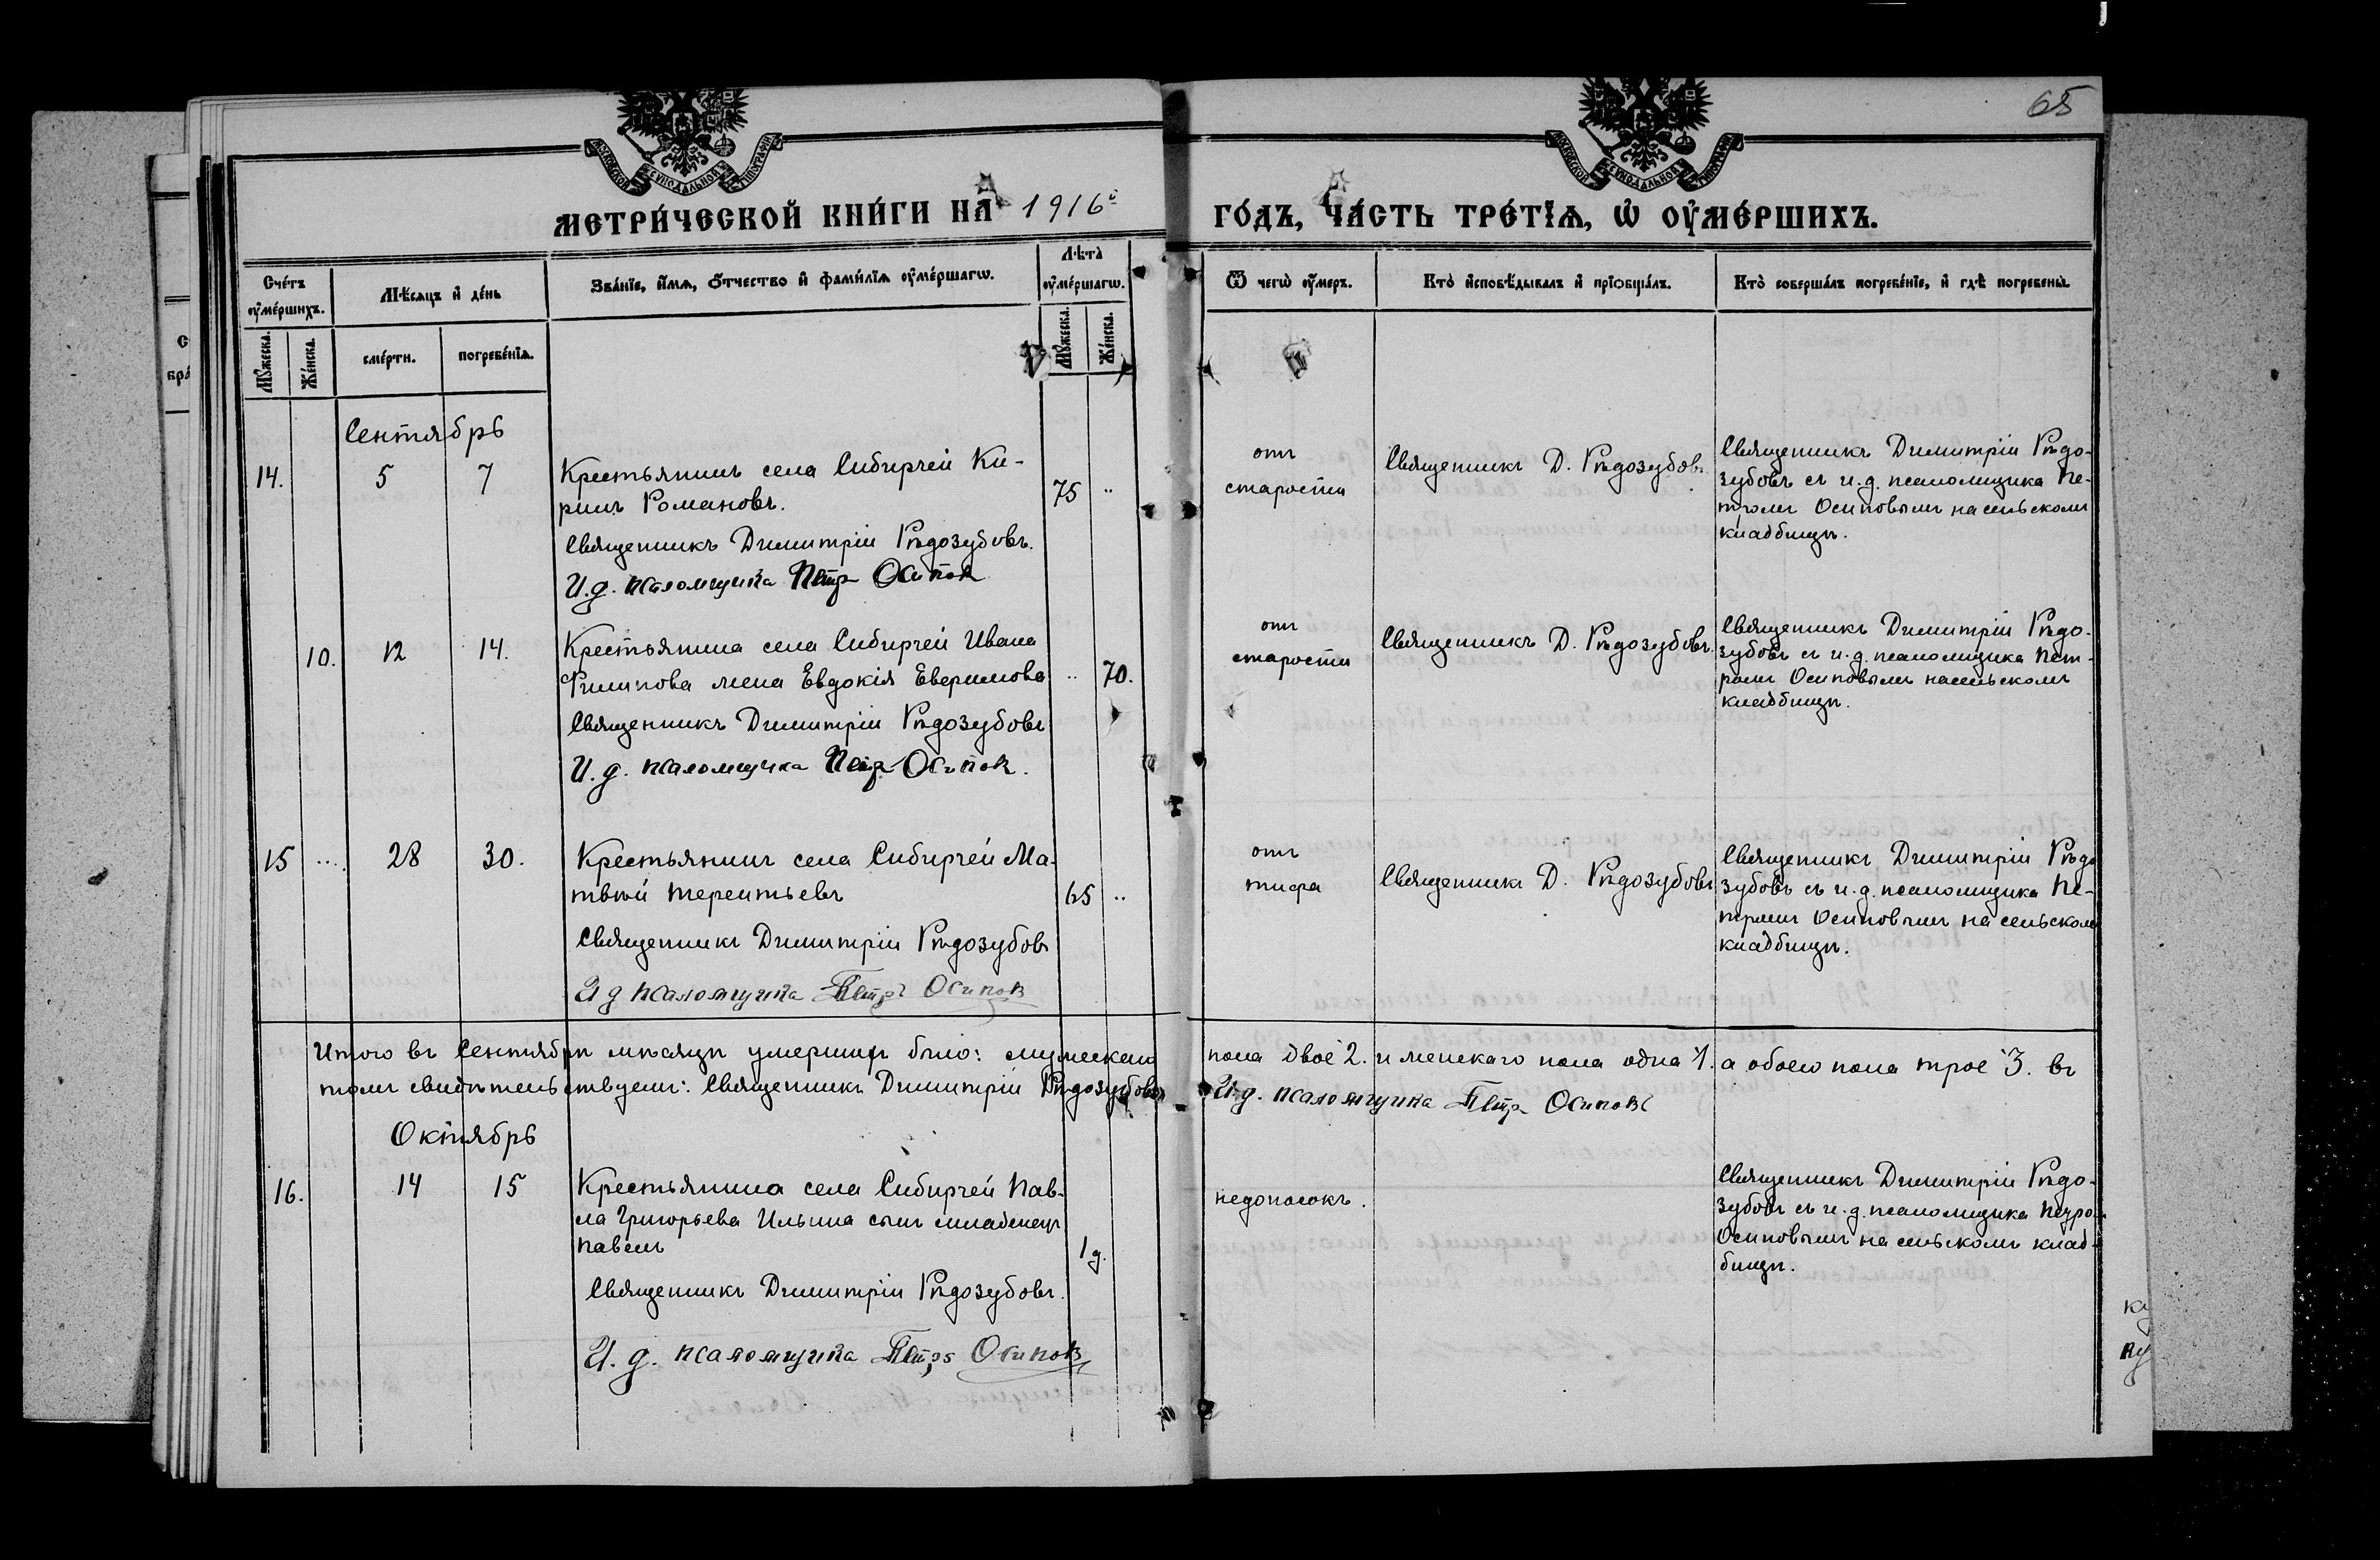 65
МОСКОВСКОЙ СѴНОДАЛЬНОЙ ТИПОГРАФІИ
МОСКОВСКОЙ СѴНОДАЛЬНОЙ ТИПОГРАФІИ
МЕТРИ́ЧЕСКОЙ КНИ́ГИ НА 1916й
ГО́ДЪ, ЧА́СТЬ ТРЕ́ТЇѦ, Ѡ҆ ОУ҆МЕ́РШИХЪ.
Сче́тъ оу҆ме́ршихъ.
Мѣ́сѧцъ и҆ де́нь
Зва́нїе, и҆́мѧ, ѻ҆́тчество и҆ фами́лїѧ оу҆ме́ршагѡ.
Лѣ̑та̀ оу҆ме́ршагѡ.
Ѿ чегѡ̀ оу҆́меръ.
Кто̀ и҆сповѣ́дывалъ и҆ прїѻбща́лъ.
Кто̀ соверша́лъ погребе́нїе, и҆ гдѣ̀ погребены̀.
Мꙋ́жеска.
Же́нска.
сме́рти.
погребе́нїѧ.
Мꙋ́жеска.
Же́нска.
Сентябрь
14. 5 7
Крестьянинъ села Сибирчей Ки-
рилъ Романовъ.
75 "
Священникъ Димитрій Рѣдозубовъ.
И.д. псаломщика Петръ Осиповъ
отъ
старости
Священникъ Д. Рѣдозубовъ.
Священникъ Димитрій Рѣдо-
зубовъ съ и.д. псаломщика Пе-
тромъ Осиповымъ на сельскомъ
кладбищѣ.
10. 12 14.
Крестьянина села Сибирчей Ивана
Филипова жена Евдокія Еверимова
" 70.
Священникъ Димитрій Рѣдозубовъ
И.д. псаломщика Петръ Осиповъ.
отъ
старости
Священникъ Д. Рѣдозубовъ.
Священникъ Димитрій Рѣдо-
зубовъ съ и.д. псаломщика Пет-
ромъ Осиповымъ на сельскомъ
кладбищѣ.
15 ... 28 30.
Крестьянинъ села Сибирчей Ма-
твѣй Терентьевъ
65 "
Священникъ Димитрій Рѣдозубовъ
И д псаломщика Петръ Осиповъ
отъ
тифа
Священникъ Д. Рѣдозубовъ
Священникъ Димитрій Рѣдо
зубовъ съ и.д. псаломщика Пе-
тромъ Осиповымъ на сельскомъ
кладбищѣ.
Итого въ Сентябрѣ мѣсяцѣ умершихъ было: мужескаго пола двое 2. и женскаго пола одна 1. а обоего пола трое 3. въ
томъ свидѣтельствуемъ: Священникъ Димитрій Рѣдозубовъ И.д. псаломщика Петръ Осиповъ
Октябрь
16. 14 15
Крестьянина села Сибирчей Пав-
ла Григорьева Ильина сынъ младенецъ
Павелъ
1 д.
Священникъ Димитрій Рѣдозубовъ.
И.д. псаломщика Петръ Осиповъ
недоносокъ.
Священникъ Димитрій Рѣдо-
зубовъ съ и.д. псаломщика Петром
Осиповымъ на сельскомъ клад-
бищѣ.